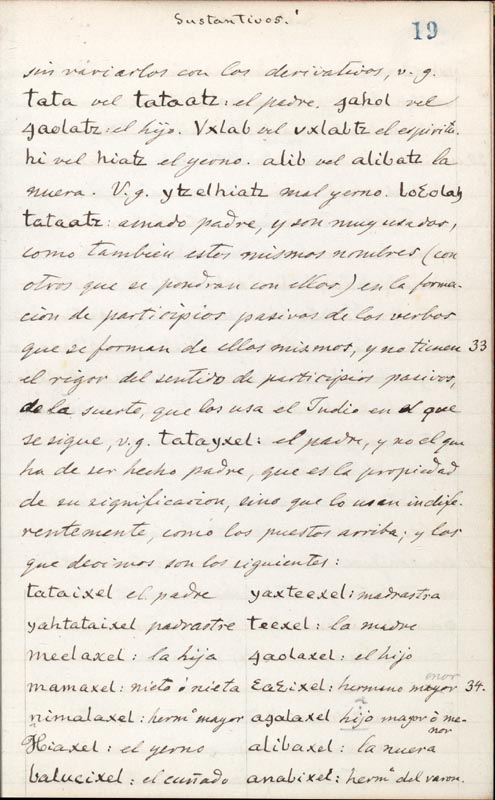 Sustantivos.
19
sin variarlos con los derivativos, v. g.
tata vel tataatz: el padre. 4ahol vel
4aolatz: el hijo. Vxlab vel vxlabtz el espiritu.
hi vel hiatz el yerno. alib vel alibatz la
nuera. V. g. ytzelhiatz mal yerno. loƐolah
tataatz: amado padre, y son muy usados,
como tambien estos mismos nombres (con
otros que se pondran con ellos) en la forma-
cion de participios pasivos de los verbos
que se forman de ellos mismos, y no tienen 33
el rigor del sentido de participios pasivos,
de la suerte, que los usa el Indio en el que
se sigue, v. g. tatayxel: el padre, y no el que
ha de ser hecho padre, que es la propiedad
de su significacion, sino que lo usan indife-
rentemente, como los puestos arriba; y los
que decimos son los siguientes:
tataixel el padre yaxteexel: madrastra
yahtataixel padrastre teexel: la madre
meelaxel: la hija 4aolaxel: el hijo
mamaxel: nieto ó nieta ƐaƐixel: hermano mayor menor 34.
nimalaxel: hermº mayor a4alaxel hijo mayor ó me-
nor
Hiaxel: el yerno alibaxel: la nuera
balucixel: el cuñado anabixel: hermª del varon.